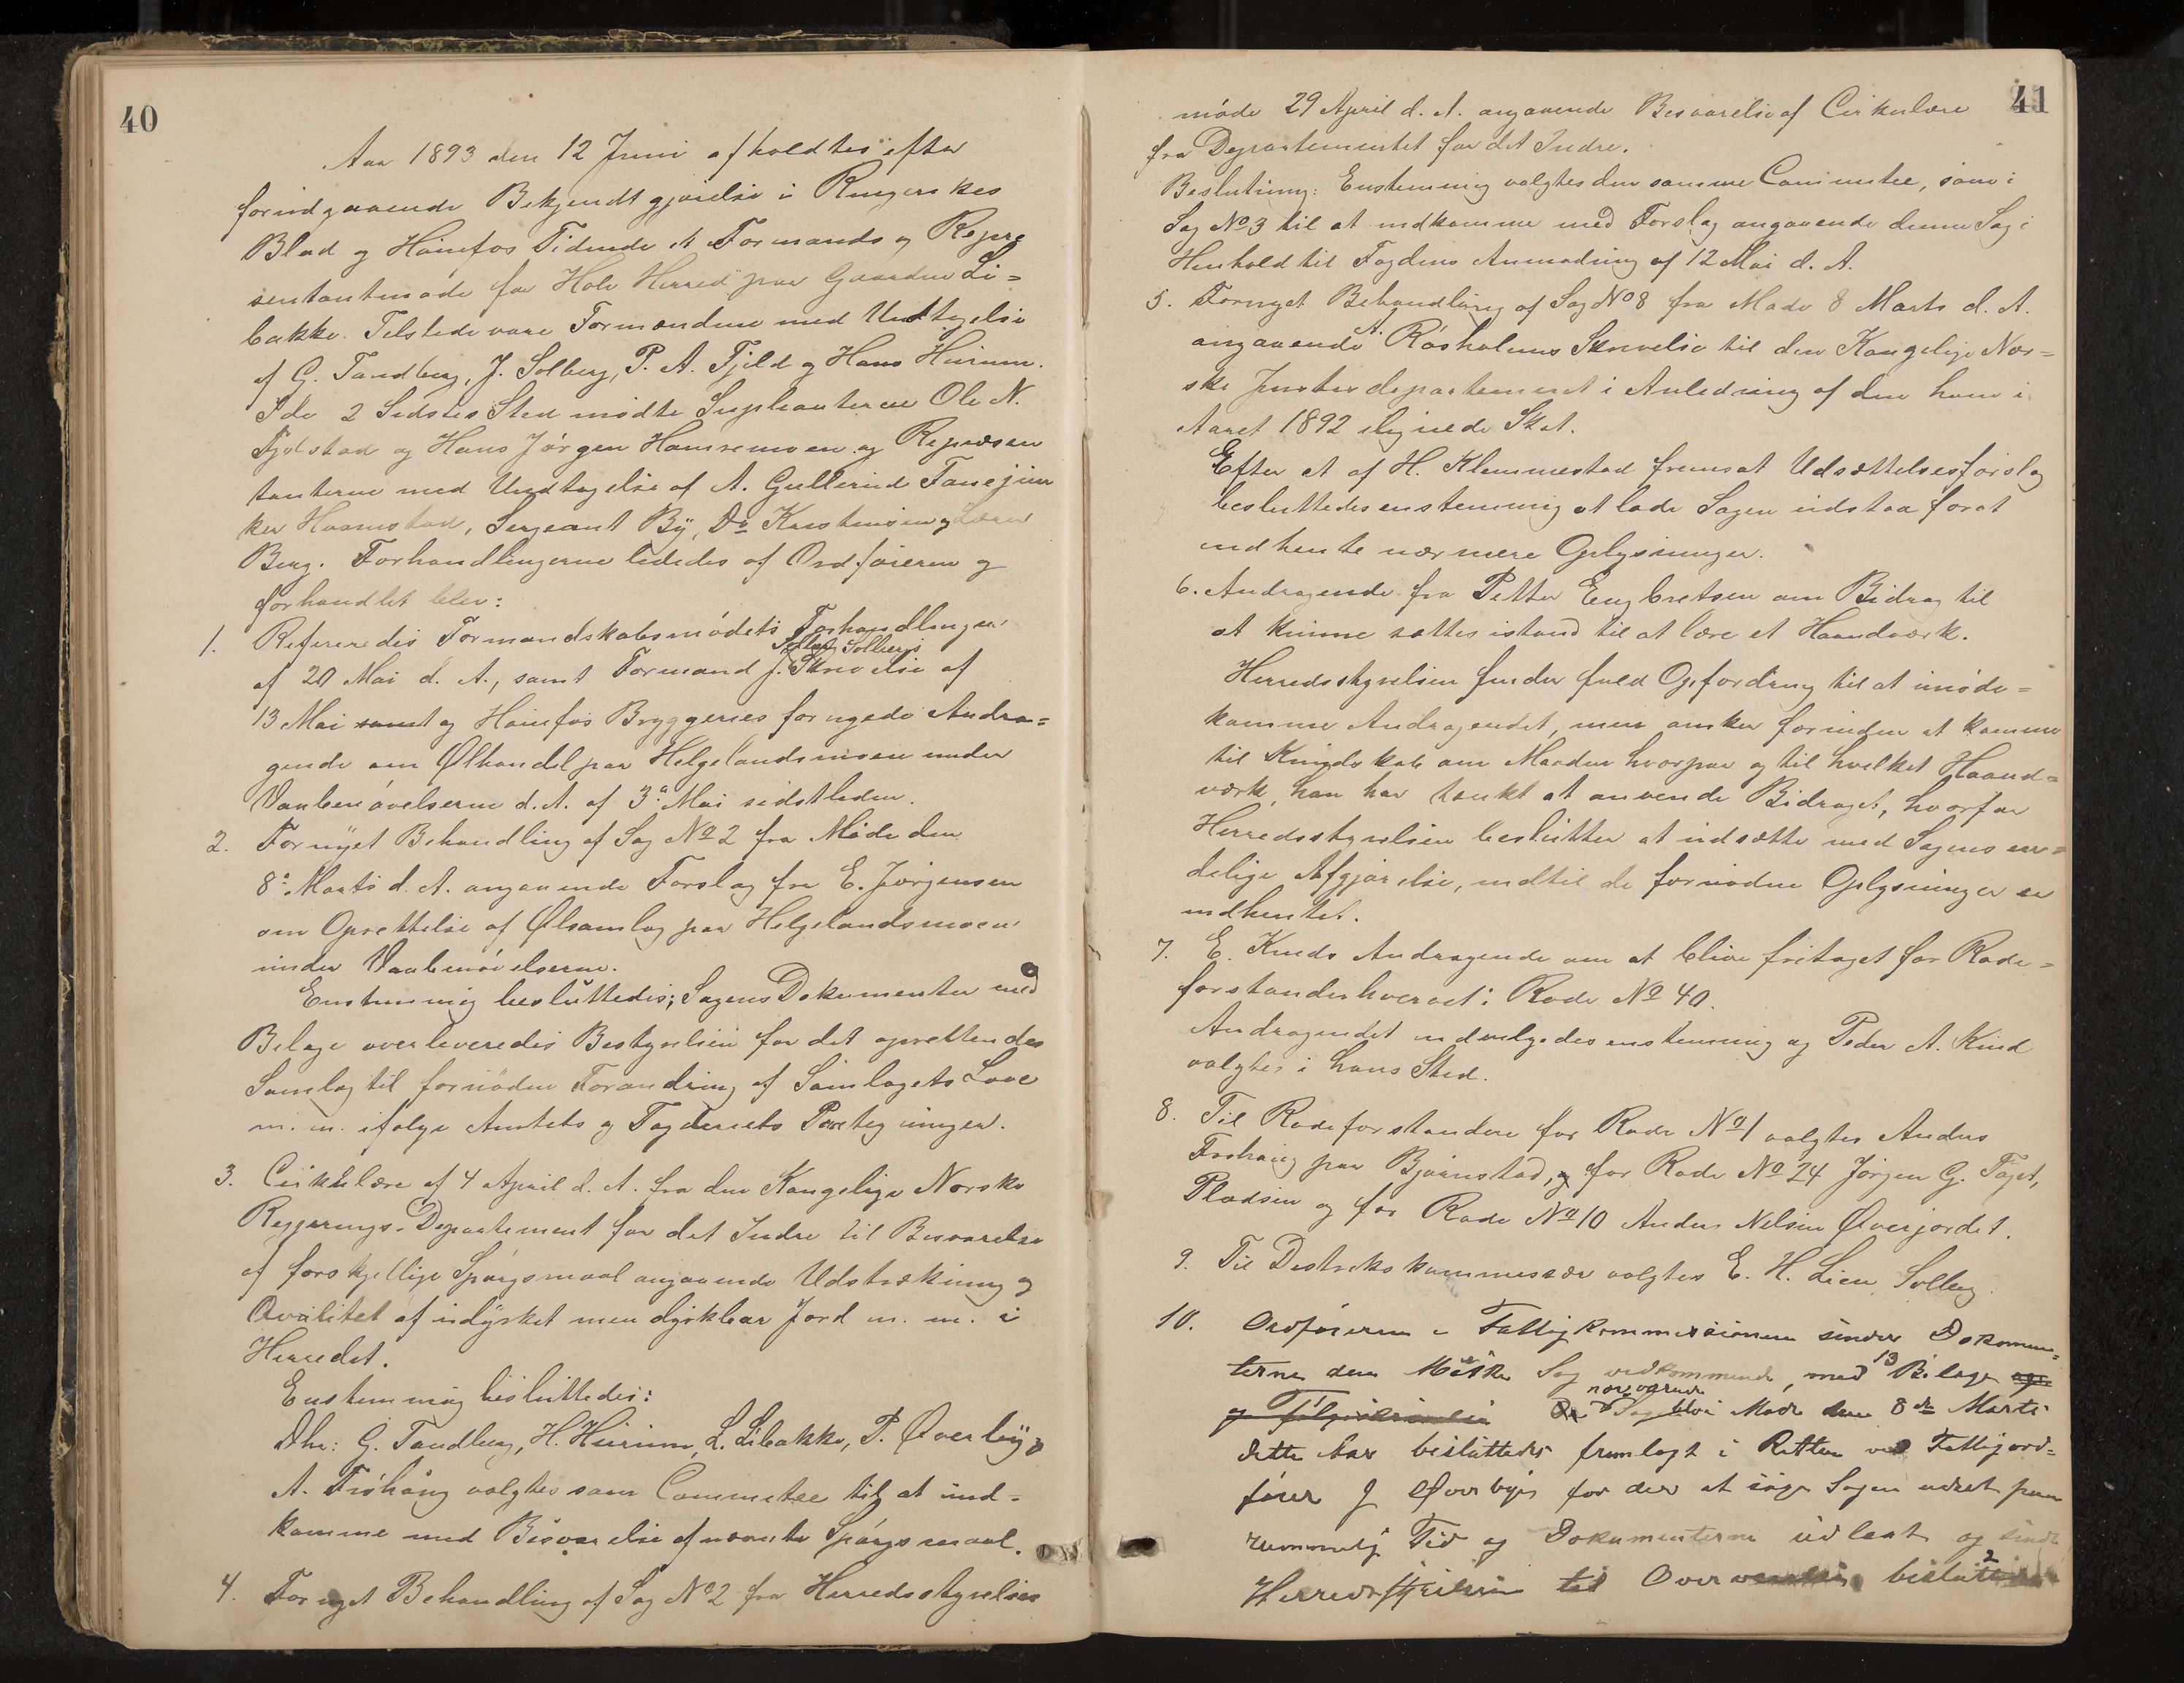 40
Aar 1893 den 12 Juni afholdtes efter
forindgaaende Bekjendtgjørelse i Ringerikes
Blad og Hønefos Tidende et Formands og Repræ
sentantmøde for Hole Herred paa Gaarden Li=
bakke. Tilstede vare Formændene med Undtagelse
af G. Tandberg, J. Solberg, P. A. Fjeld og Hans Hurum.
I de 2 Sidstes Sted mødte Supleanterne Ole N.
Fjelstad og Hans Jørgen Hamremoen og Repræsen
tanterne med Undtagelse af A. Gullerud Fanejun
ker Haarustad, Sergeant By, Do Kristensen og Lærer
Berg. Forhandlingerne lededes af Ordføreren og
forhandlet blev:
1. Refereredes Formandskabsmødets Forhandlinger
af 20 Mai d. A., samt Formand J. Solbergs Skrivelse af
13 Mai samt og Hønefos Bryggeries fornyede Andra=
gende om Ølhandel paa Helgelandsmoen under
Vaabenøvelserne d. A. af 3die Mai sidstleden.
2. Fornyet Behandling af Sag No 2 fra Møde den
8de Marts d. A. angaaende Forslag fra E. Jørgensen
om Oprettelse af Ølsamlag paa Helgelandsmoen
under Vaabenøvelserne.
Enstemmig besluttedes; Sagens Dokumenter med
Bilage overleveredes Bestyrelsen for det oprettendes
Samlag til fornøden Forandring af Samlagets Love
m. m. ifølge Amtets og Fogderiets Paategninger.
3. Cirkulære af 4 April d. A. fra den Kongelige Norske
Regjerings-Departement for det Indre til Besvarelse
af forskjellige Spørgsmaal angaaende Udstrækning og
Qvalitet af udyrket men dyrkbar Jord m. m. i
Herredet.
Enstemmig besluttedes:
Dhr: G. Tandberg, H. Hurum, L. Libakke, P. Øverby og
A. Frøhaug valgtes som Committee til at ind-
komme med Besvarelse af nævnte Spørgsmaal.
4. Fornyet Behandling af Sag No 2 fra Herredsstyrelses
41
møde 29 April d. A. angaaende Besvarelse af Cirkulære
fra Departementet for det Indre.
Beslutning: Enstemmig valgtes den samme Committee, som i
Sag No 3 til at indkomme med Forslag angaaende denne Sag i
Henhold til Fogdens Anmodning af 12 Mai d. A.
5. Fornyet Behandling af Sag No 8 fra Møde 8 Marts d. A.
angaaende A. Røsholms Skrivelse til den Kongelige Nor=
ske Justisdepartement i Anledning af den ham i
Aaret 1892 ilignede Skat.
Efter et af H. Klemmestad fremsat Udsættelsesforslag
besluttedes enstemmig at lade Sagen udstaa forat
indhente nærmere Oplysninger.
6. Andragende fra Petter Engebretsen om Bidrag til
at kunne sættes istand til at lære et Haandværk.
Herredsstyrelsen finder fuld Opfordring til at imøde=
komme Andragendet, men ønsker forinden at komme
til Kundskab om Maaden hvorpaa og til hvilket Haand=
værk, han har tænkt at anvende Bidraget, hvorfor
Herredsstyrelsen beslutter at udsætte med Sagens en=
delige Afgjørelse, indtil de fornødne Oplysninger er
indhentet.
7. E. Kinds Andragende om at blive fritaget for Rode=
forstanderhvervet i Rode No 40.
Andragendet indvilgedes enstemmig og Peder A. Kind
valgtes i hans Sted.
8. Til Rodeforstandere for Rode No 1 valgtes Anders
Frøhaug paa Bjørnstad, og for Rode No 24 Jørgen G. Faget,
Pladsen og for Rode No 10 Anders Nelsen Øverjordet.
9. Til Distriktskommissær valgtes E. H. Lien, Solberg.
10. Ordføreren i Fattigkommissionen sender Dokumen=
terne den Sag vedkommende, med 13 Bilage
nærværende Sag blev i Møde den 8de Marts
dette Aar besluttedes fremlagt i Retten ved Fattigord=
fører J Øverby for der at søge Sagen udsat paa
rummelig Tid og Dokumenterne udlaat og sendt
Herredsstyrelsen til